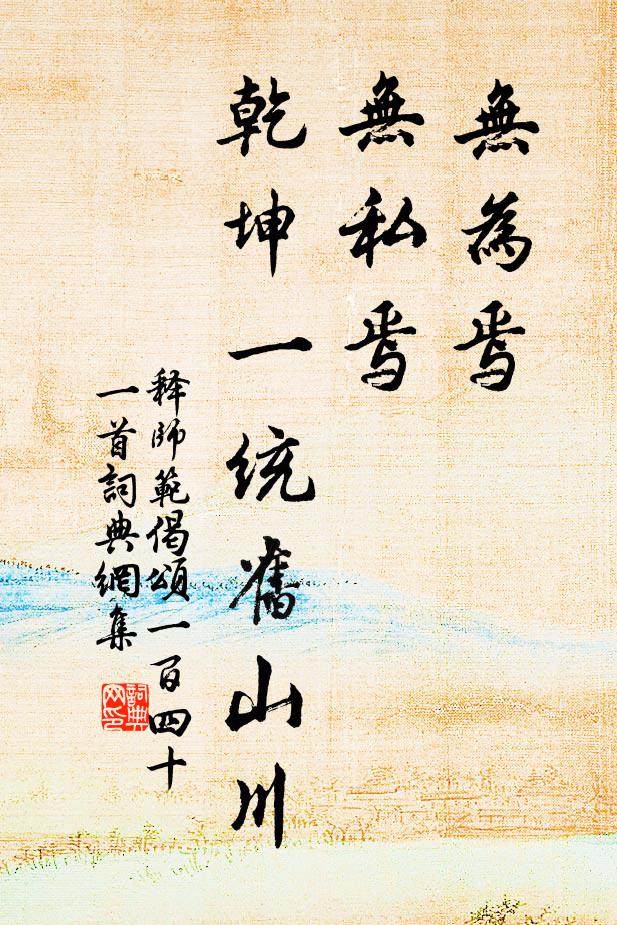 無為焉
無私焉
乾坤一統舊山川
释師範偈頌一百四十
一首詞典網集
詞典
网印